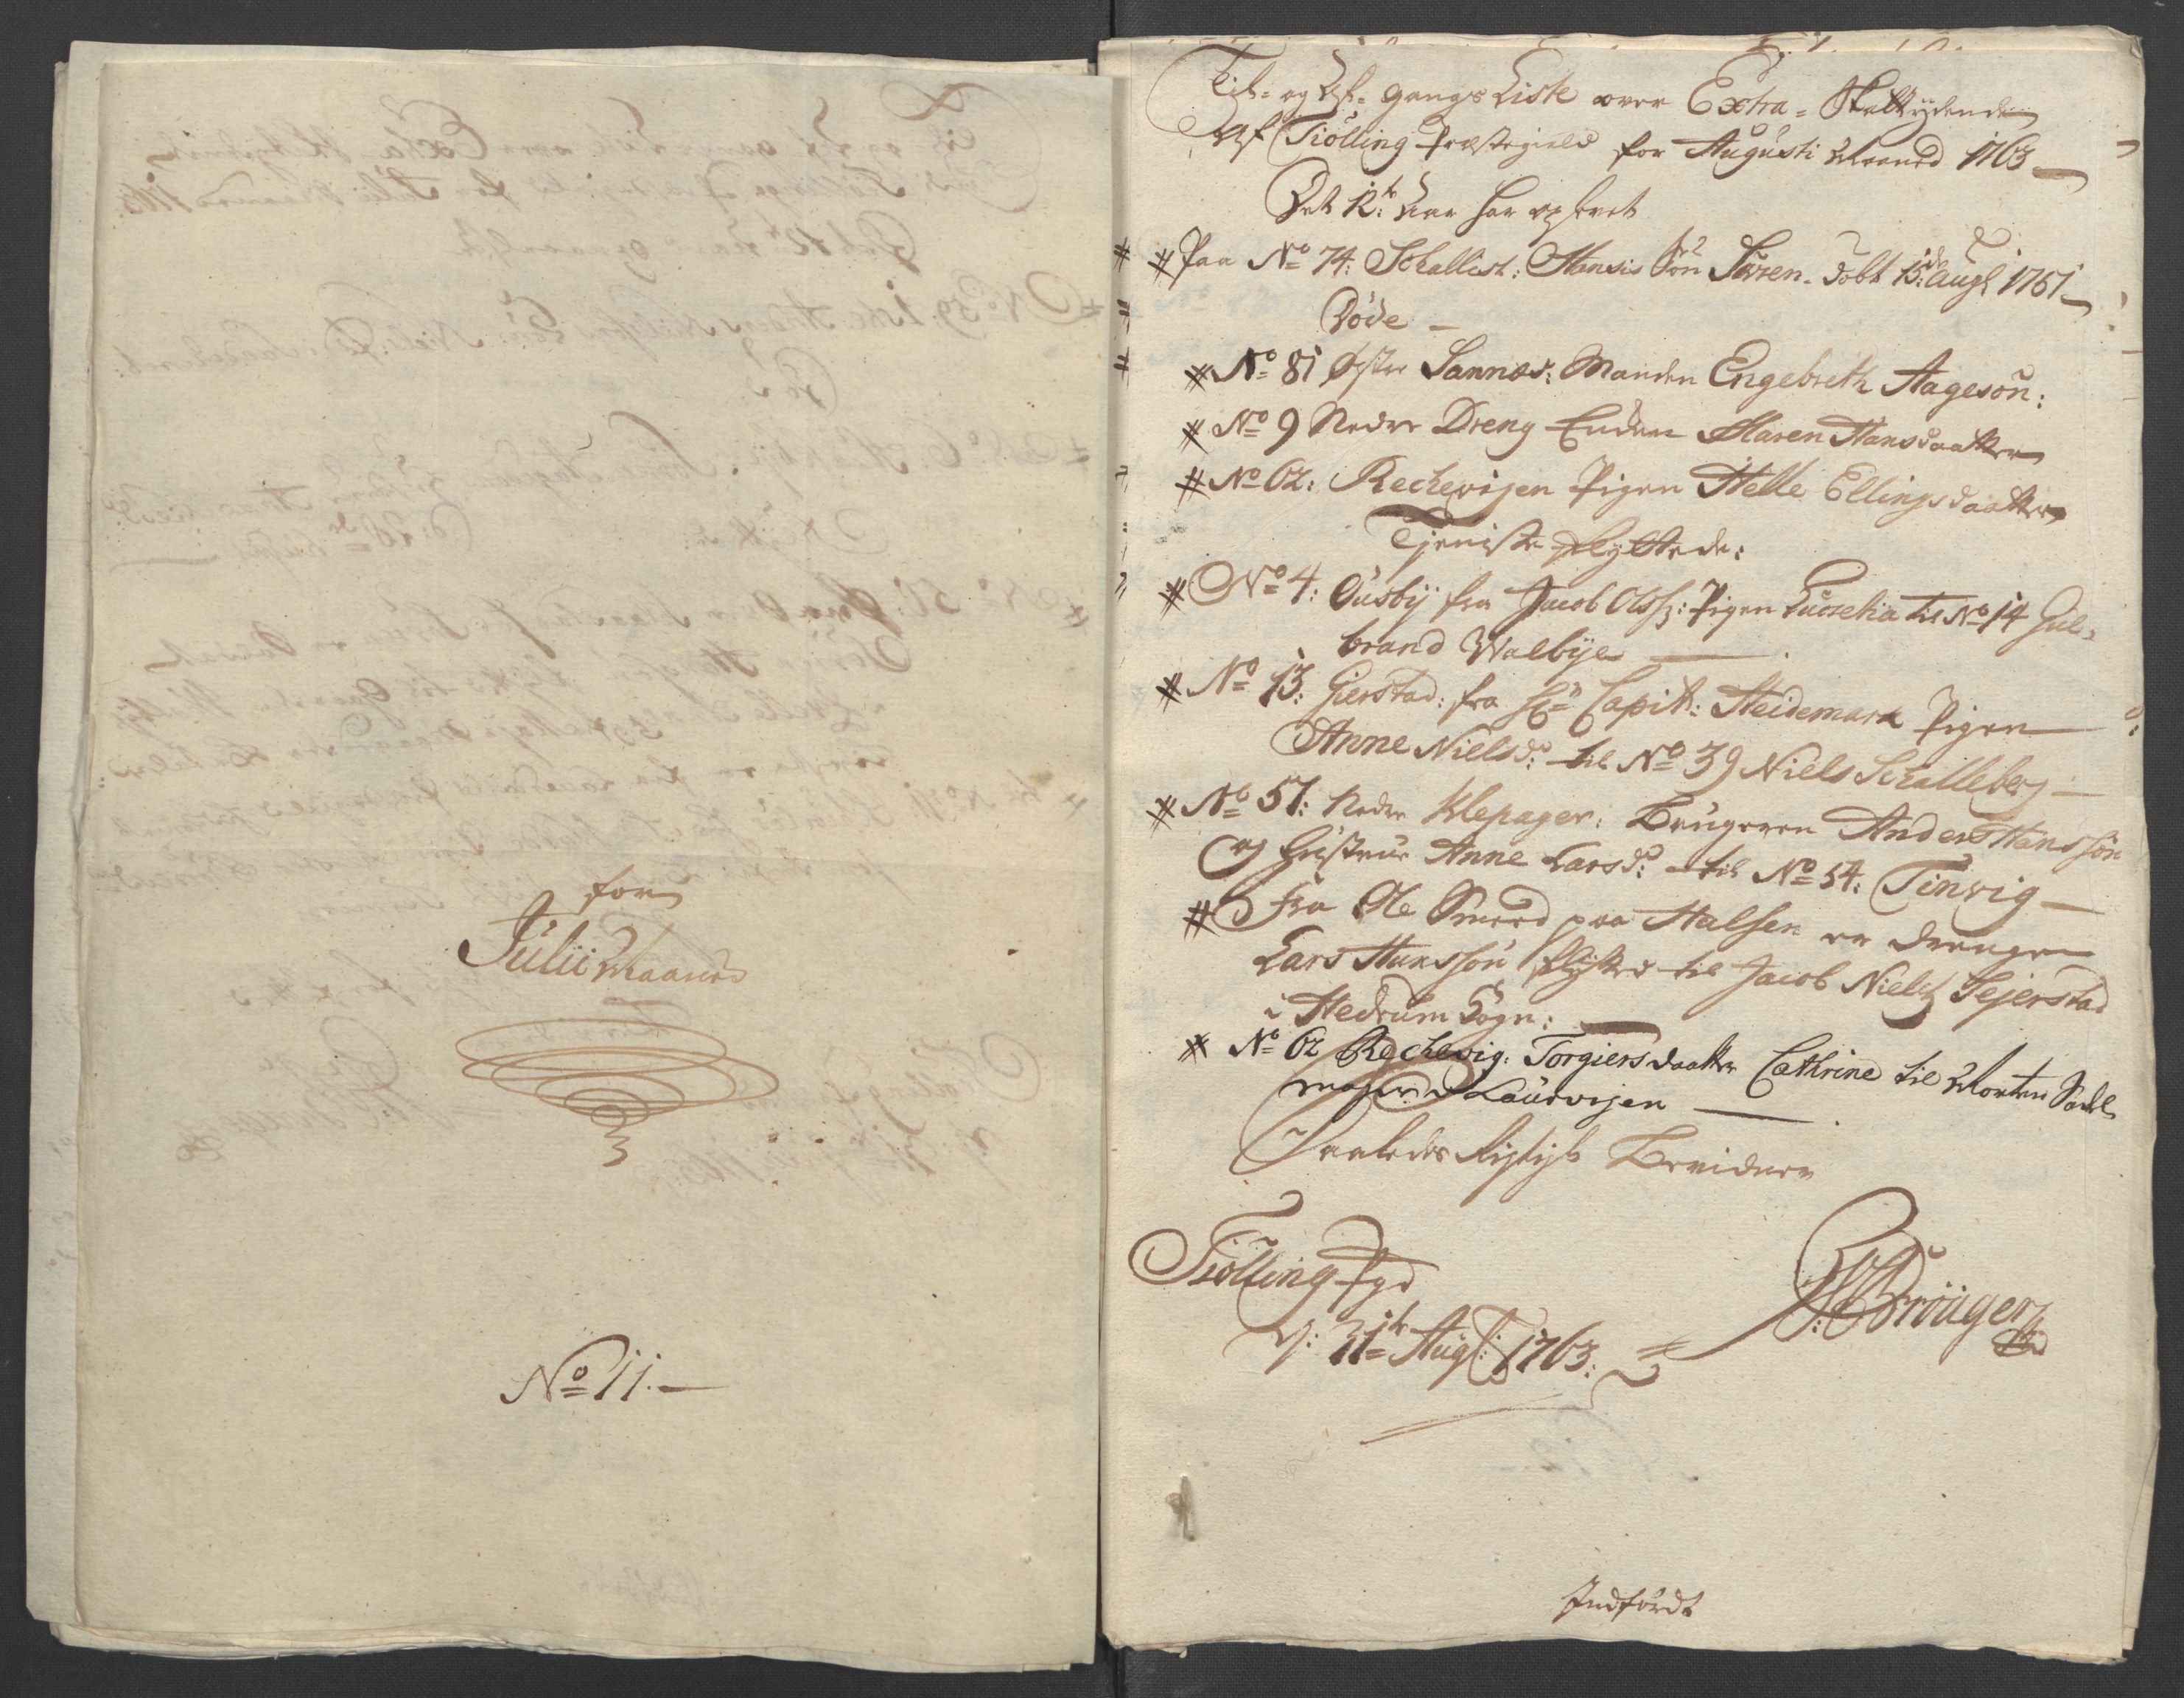 for
Julii Maaned
No 11.
Til- og Af- gangs Liste over Extra- Skattydende
Af Tiølling Præstegield for Augusti Maaned 1763
Det 12te Aar har opfyldt
Paa No 74: Schallist: Hansis Søn Søren døbt 15de Augt 1751
Døde
No 81 Østre Sannæs: Manden Engebreth Aagesøn:
No 9 Nedre Dreng Enken Maren Hansdaatter
No 62: Rechevigen Pigen Helle Ellingsdaatter
Tjeniste flyttede:
No 4: Ousby fra Jacob Olss: Pigen Lucretia til No 14 Gul-
brand Walbye
No 13: Gierstad: fra Hr Capit: Heidemark Pigen
Anne Nielsd: til No 39 Niels Schalleberg
No 57: Nedre Klepager: Brugeren Anders Hanssøn
og Hustrue Anne Larsd: til No 54: Tinvig
Fra Ole Smed paa Halsen er Drengen
Lars Hanssøn flyttet til Jacob Niels Sejerstad
i Hedrum Sogn:
No 62 Rechevig: Torgiersdaatter Cathrine til Morten Sadel
mager i Laurvigen
Saaledes Rigtigt Bevidner
Tiølling Pgd
d: 31te Augt: 1763:
Brøuger
Indført